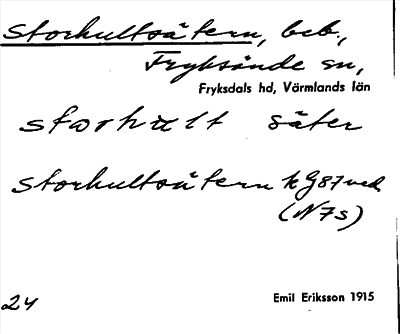 Storhultsätern, beb.,
Fryksände sn,
Fryksdals hd, Värmlands län
storhult säter
Storhultsätern k G87 ved
(N7s)
24 Emil Eriksson 1915